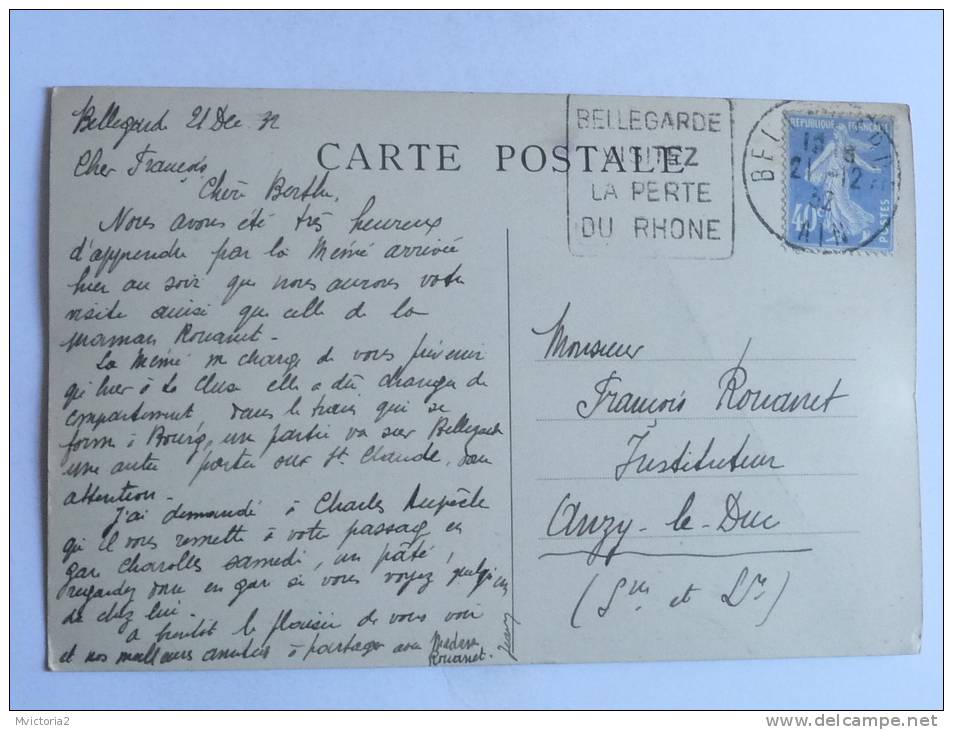 Bellegarde 21 Dec 32
CARTE POSTALE
Cher François,
Chère Berthe,
Nous avons été très heureux
d'apprendre par la Mémé arrivée
hier au soir que nous aurons votre
visite ainsi que celle de la
maman Rouanet.
La Mémé me charge de vous prévenir
qu'hier à La Cluse elle a dû changer de
compartiment dans le train qui se
forme à Bourg, une partie va sur Bellegarde
une autre partie sur St. Claude, donc
attention.
J'ai demandé à Charles
qu'il vous remette à votre passage en
gare Charolles samedi, un pâté,
regardez donc en gare si vous voyez quelqu'un
de chez lui.
à bientôt le plaisir de vous voir
et nos meilleures amitiés à partager avec Madame
Rouanet.
BELLEGARDE
VISITEZ
LA PERTE
DU RHONE
BELLEGARDE
21-12
32
AIN
REPUBLIQUE FRANÇAISE
40c
POSTES
Monsieur
François Rouanet
Instituteur
Anzy-le-Duc
(Sne et Lre)
Mvictoria2
www.delcampe.net